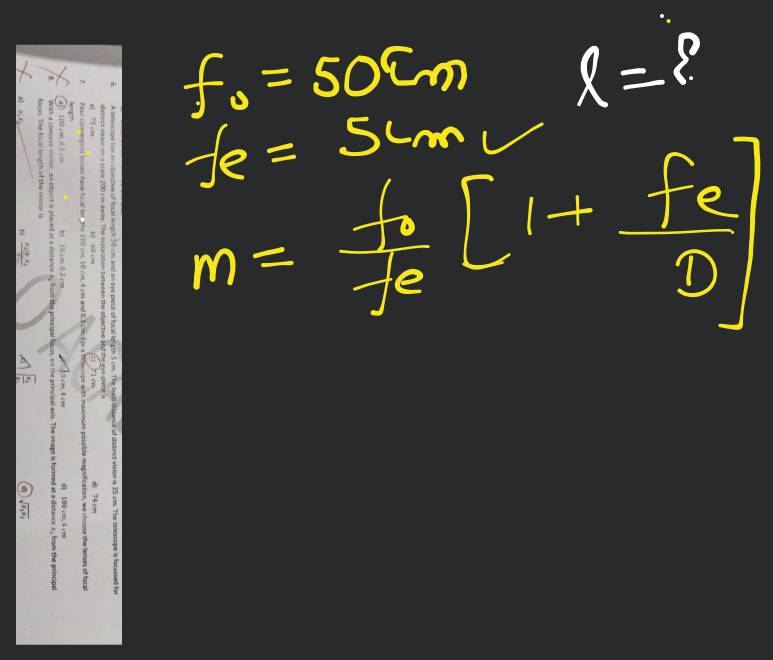 f₀ = 50 cm
l = ?
fe = 5 cm ✓
m = f₀/fe [1 + fe/D]
6. A telescope has an objective of focal length 50 cm and an eye piece of focal length 5 cm. The least distance of distinct vision is 25 cm. The telescope is focussed for
distinct vision on a scale 200 cm away. The separation between the objective and the eye-piece is
a) 75 cm b) 60 cm c) 71 cm d) 74 cm
7. Four convergent lenses have focal lengths 100 cm, 10 cm, 4 cm and 0.3 cm. For a telescope with maximum possible magnification, we choose the lenses of focal
length
a) 100 cm, 0.3 cm b) 10 cm, 0.3 cm c) 10 cm, 4 cm d) 100 cm, 4 cm
8. With a concave mirror, an object is placed at a distance x₁ from the principal focus, on the principal axis. The image is formed at a distance x₂ from the principal
focus. The focal length of the mirror is
a) x₁x₂ b) x₁+x₂/2 c) √x₁/x₂ d) √x₁x₂